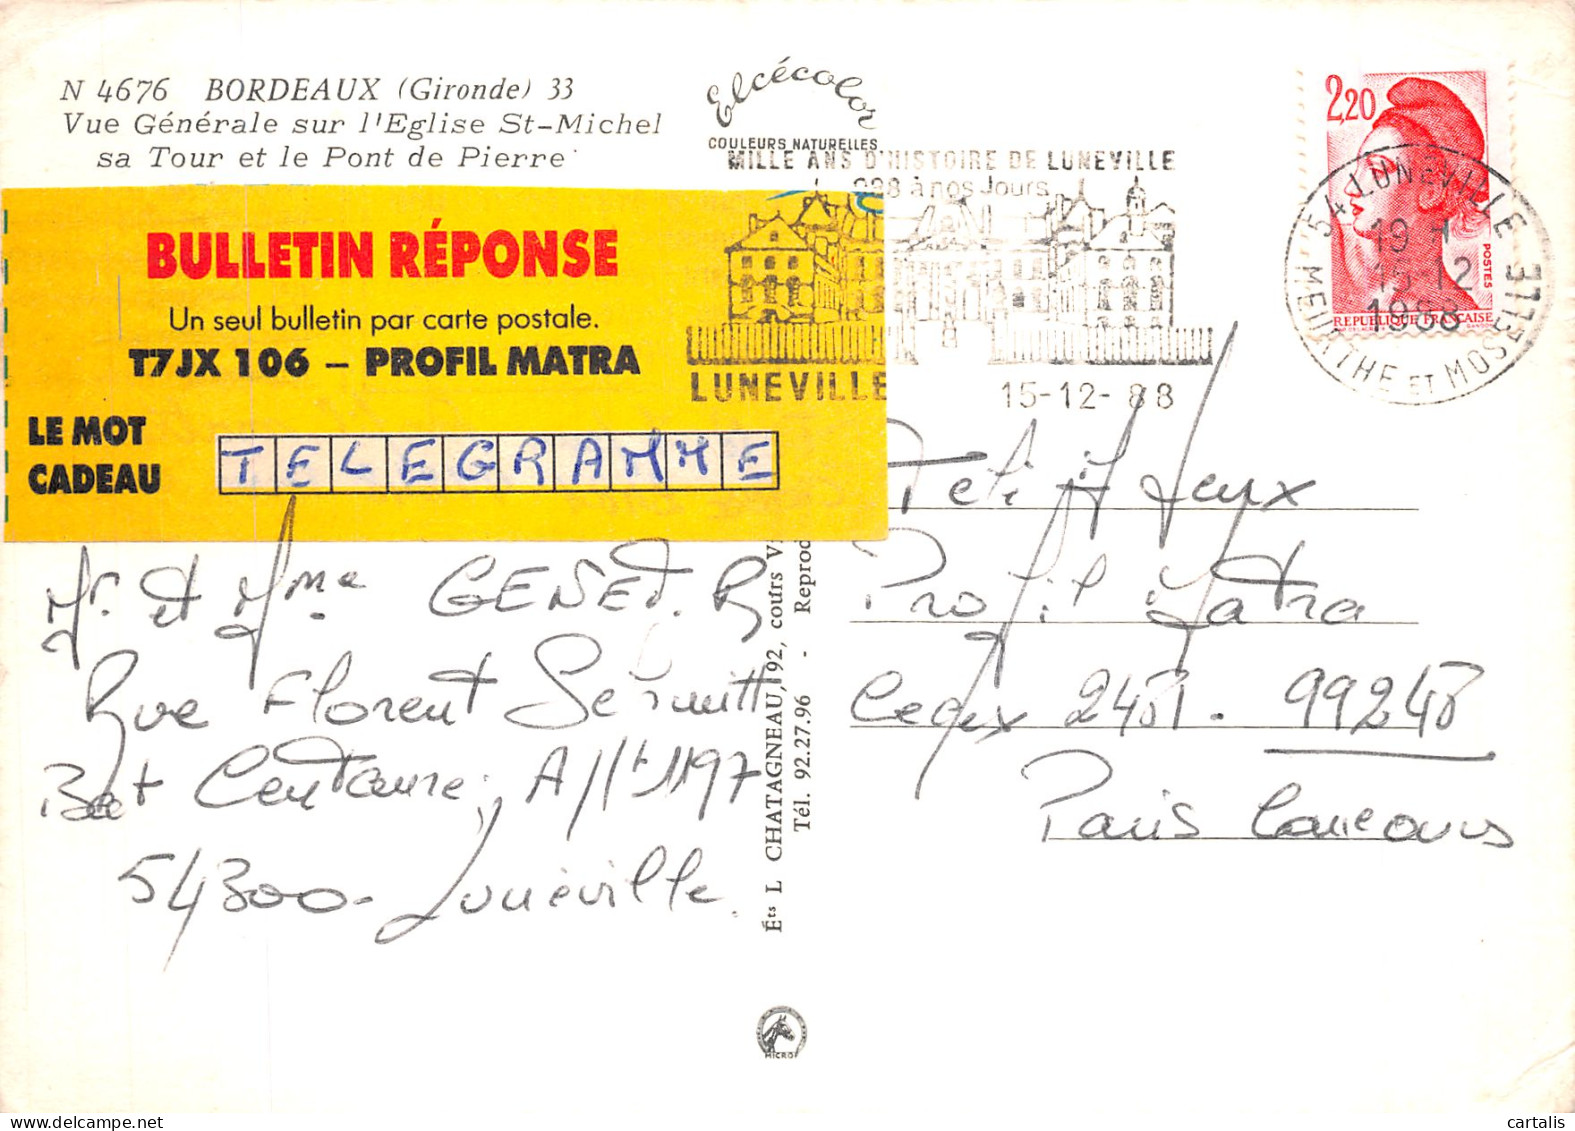 N 4676 BORDEAUX (Gironde) 33
Vue Générale sur l'Eglise St-Michel
sa Tour et le Pont de Pierre
Elcécolor
COULEURS NATURELLES
MILLE ANS D'HISTOIRE DE LUNEVILLE
à nos Jours
LUNEVILLE
15-12-88
2,20
POSTES
REPUBLIQUE FRANÇAISE
54 LUNEVILLE
19 H
15-12
1988
MEURTHE ET MOSELLE
BULLETIN RÉPONSE
Un seul bulletin par carte postale.
T7JX 106 – PROFIL MATRA
LE MOT
CADEAU
TELEGRAMME
Mr et Mme GENET. R
Rue Florent Schmitt
Bat Centaure, Appt 1197
54300 - Lunéville.
Télé 7 Jeux
Profil Matra
Cedex 2481. 99248
Paris Concours
Éts L CHATAGNEAU, 92, cours
Tél. 92.27.96 - Reprod
MICRO